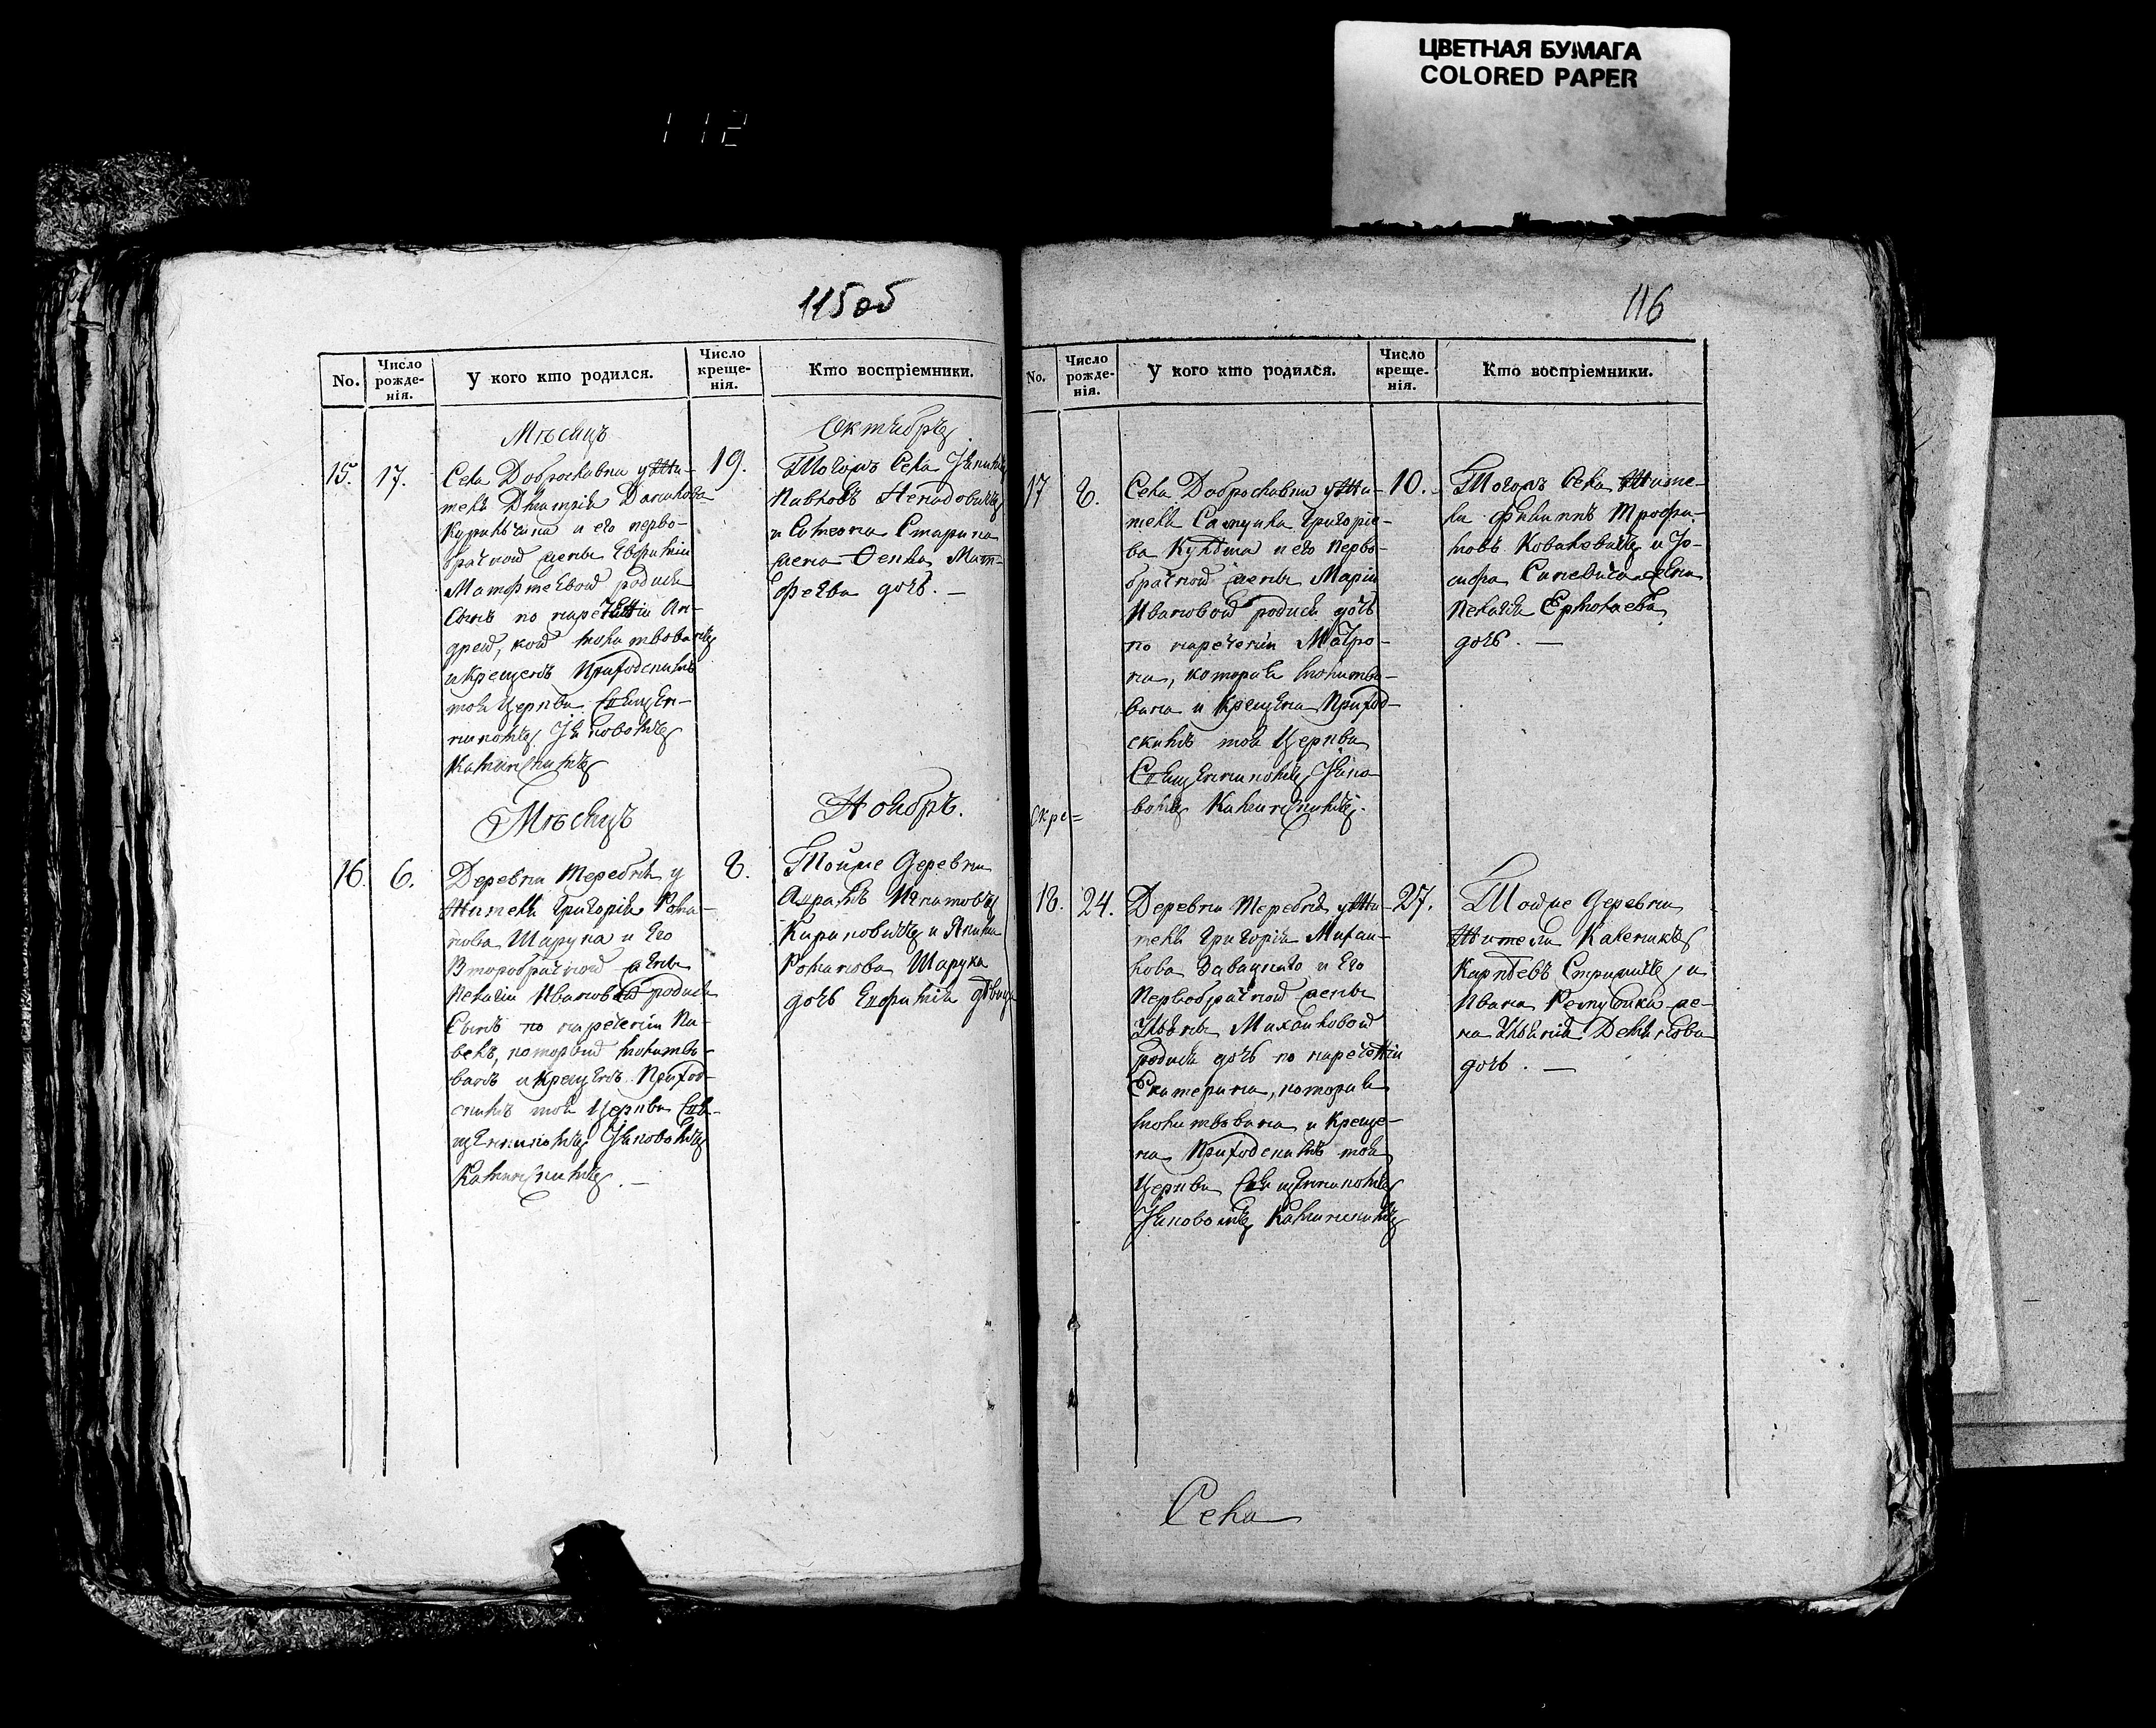 ЦВЕТНАЯ БУМАГА
COLORED PAPER
112
115об
No.
Число рожде-нія.
У кого кто родился.
Число креще-нія.
Кто воспріемники.
Мѣсяцъ
Октябрь
15.
17.
19.
Села Доброславки у жи-
теля Дмитрія
и его перво-
брачной жены Евфиміи
Матфеевой родился
Сынъ по нареченіи Ан-
дрей, кой молитвованъ
и крещенъ Приходскимъ
той Церкви Священ-
никомъ Яковомъ
Калинскимъ
Тогожъ Села
Павловъ
и Симеона
жена Фекла Мат-
феева дочь. —
Мѣсяцъ
Ноябрь.
16.
6.
8.
Деревни Теребня у
Жителя Григорія Рома-
нова Шарука и его
Второбрачной жены
Пелагіи Ивановой родился
Сынъ по нареченіи Па-
велъ, которой молитво-
ванъ и крещенъ Приход-
скимъ той Церкви Свя-
щенникомъ Яковомъ
Калинскимъ. —
Тойже Деревни
Игнатовъ
Кириловичъ и
Романова Шарука
дочь Евфимія дѣвица
116
No.
Число рожде-нія.
У кого кто родился.
Число креще-нія.
Кто воспріемники.
17
8.
10.
Села Доброславки у Жи-
теля Самуила Григорье-
ва и его Перво-
брачной жены Маріи
Ивановой родися дочь
по нареченіи Матро-
на, которая молитво-
вана и крещена Приход-
скимъ той Церкви
Священникомъ Яко-
вомъ Калинскимъ.
Тогожъ Села Жите-
ли Филиппъ Трофи-
мовъ Ковалевичъ и Іо-
сифа жена
Пелагія Ермолаева
дочь. —
18.
24.
27.
Деревни Теребня у Жи-
теля Григорія Михай-
лова Завацкаго и Его
Первобрачной жены
Михайловой
родися дочь по нареченіи
Екатерина, которая
молитвована и Креще-
на Приходскимъ той
Церкви Священникомъ
Яковомъ Калинскимъ
Тойже Деревни
Жители
и
Ивана же-
на
дочь. —
Села